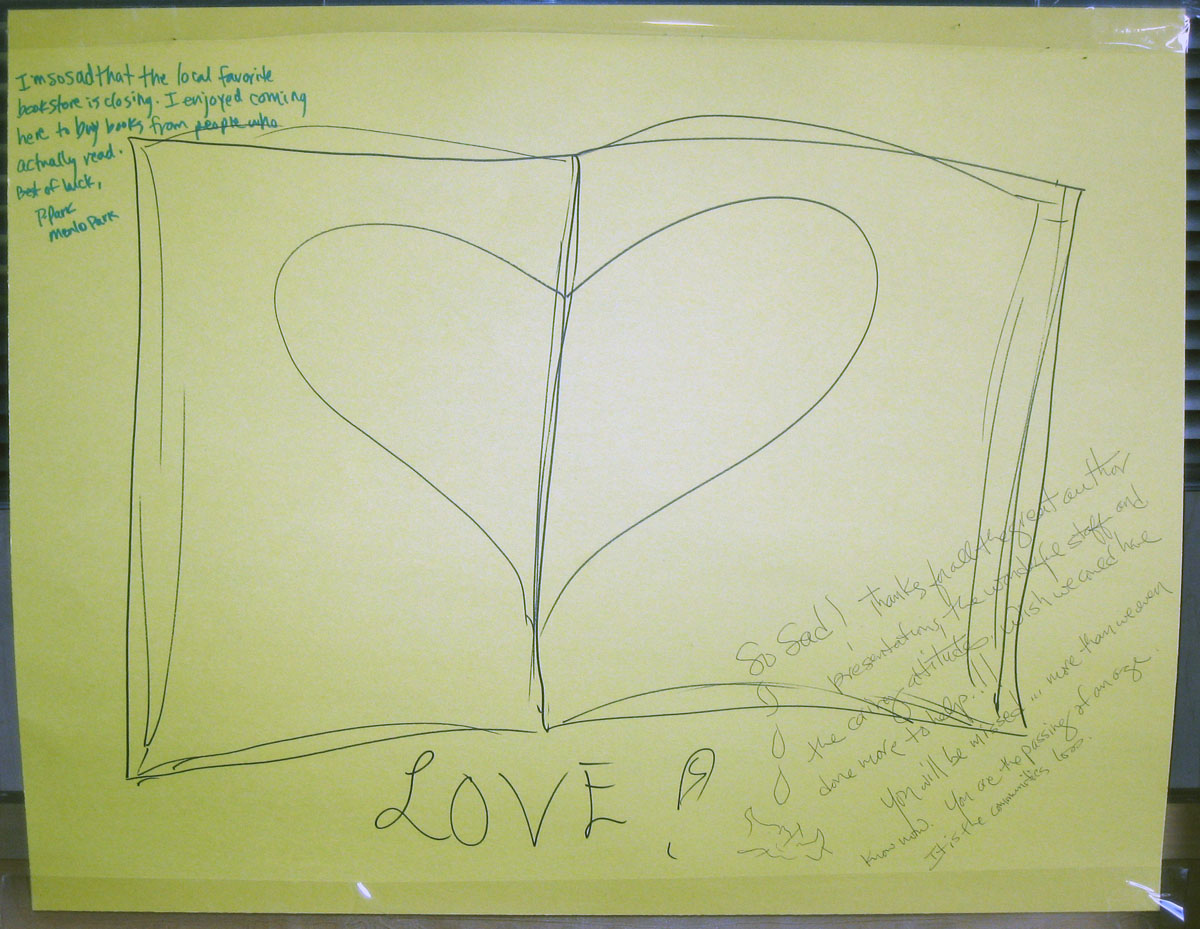 I'm so sad that the local favorite
bookstore is closing. I enjoyed coming
here to buy books from people who
actually read.
Best of luck,
P. Park
Menlo Park
So Sad! Thanks for all the great author
presentations, the wonderful staff and
the caring attitudes. Wish we could have
done more to help...!!!
You will be missed... more than we even
know now. You are the passing of an age.
It is the communities loss.
LOVE